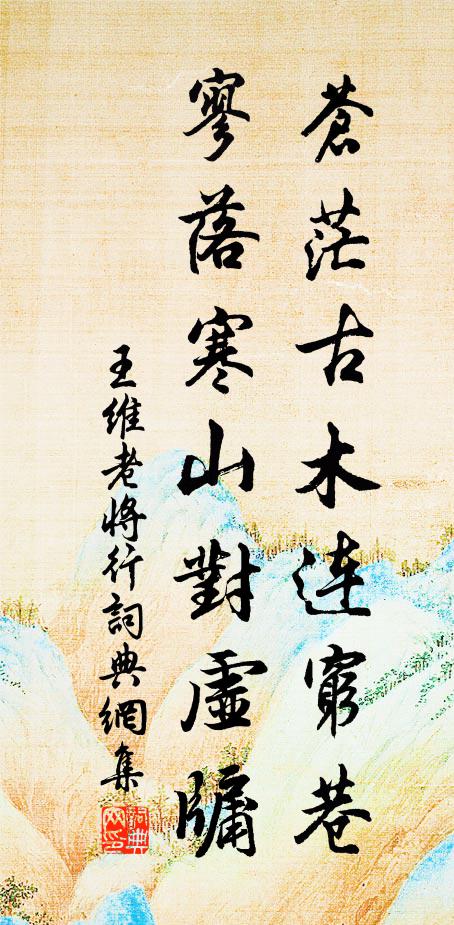 蒼茫古木连窮巷
寥落寒山對虛牖
王维老将行詞典網集
詞典網印